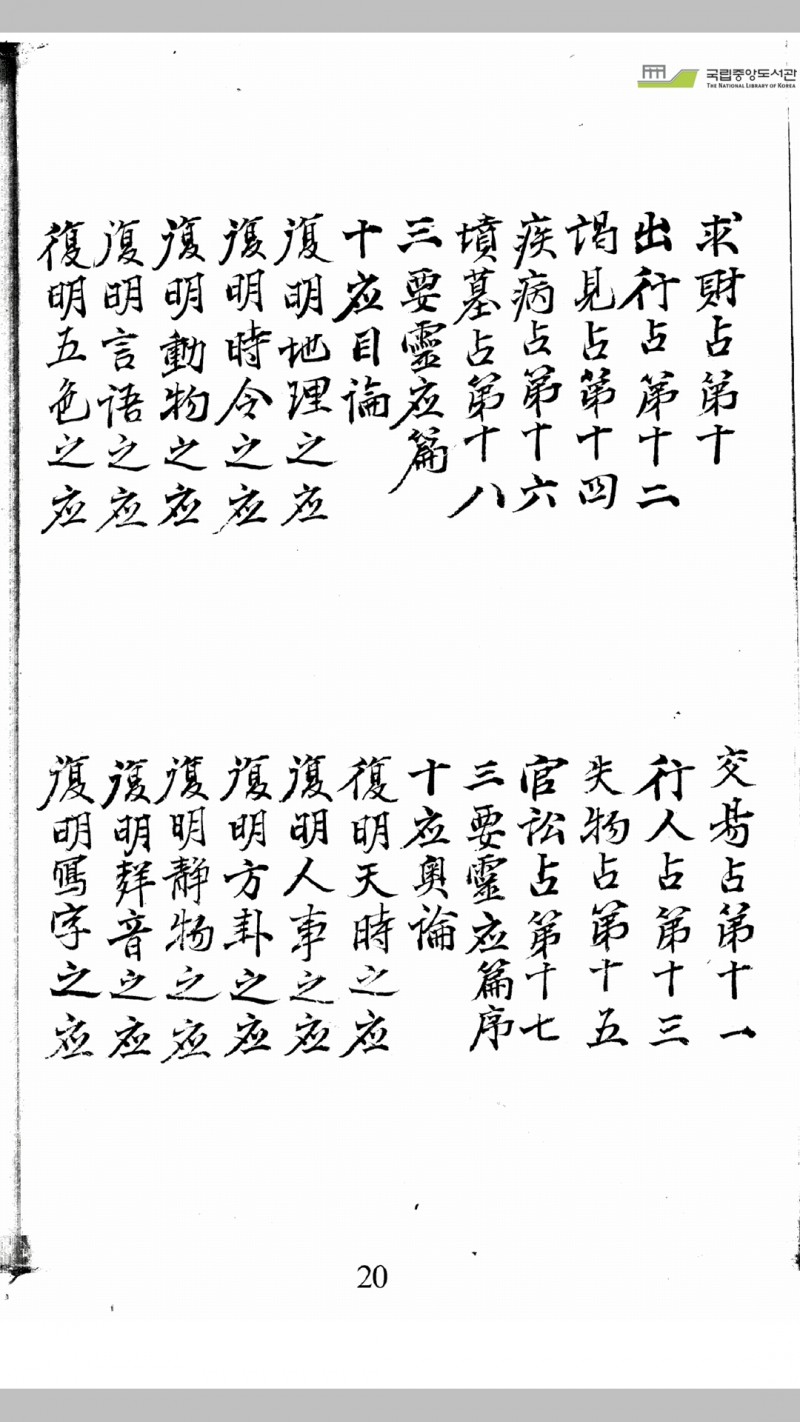 국립중앙도서관
THE NATIONAL LIBRARY OF KOREA
求財占第十
交易占第十一
出行占第十二
行人占第十三
謁見占第十四
失物占第十五
疾病占第十六
官訟占第十七
墳墓占第十八
三要靈应篇序
三要靈应篇
十应奥論
十应目論
復明天時之应
復明地理之应
復明人事之应
復明時令之应
復明方卦之应
復明動物之应
復明静物之应
復明言語之应
復明音之应
復明五色之应
復明寫字之应
20